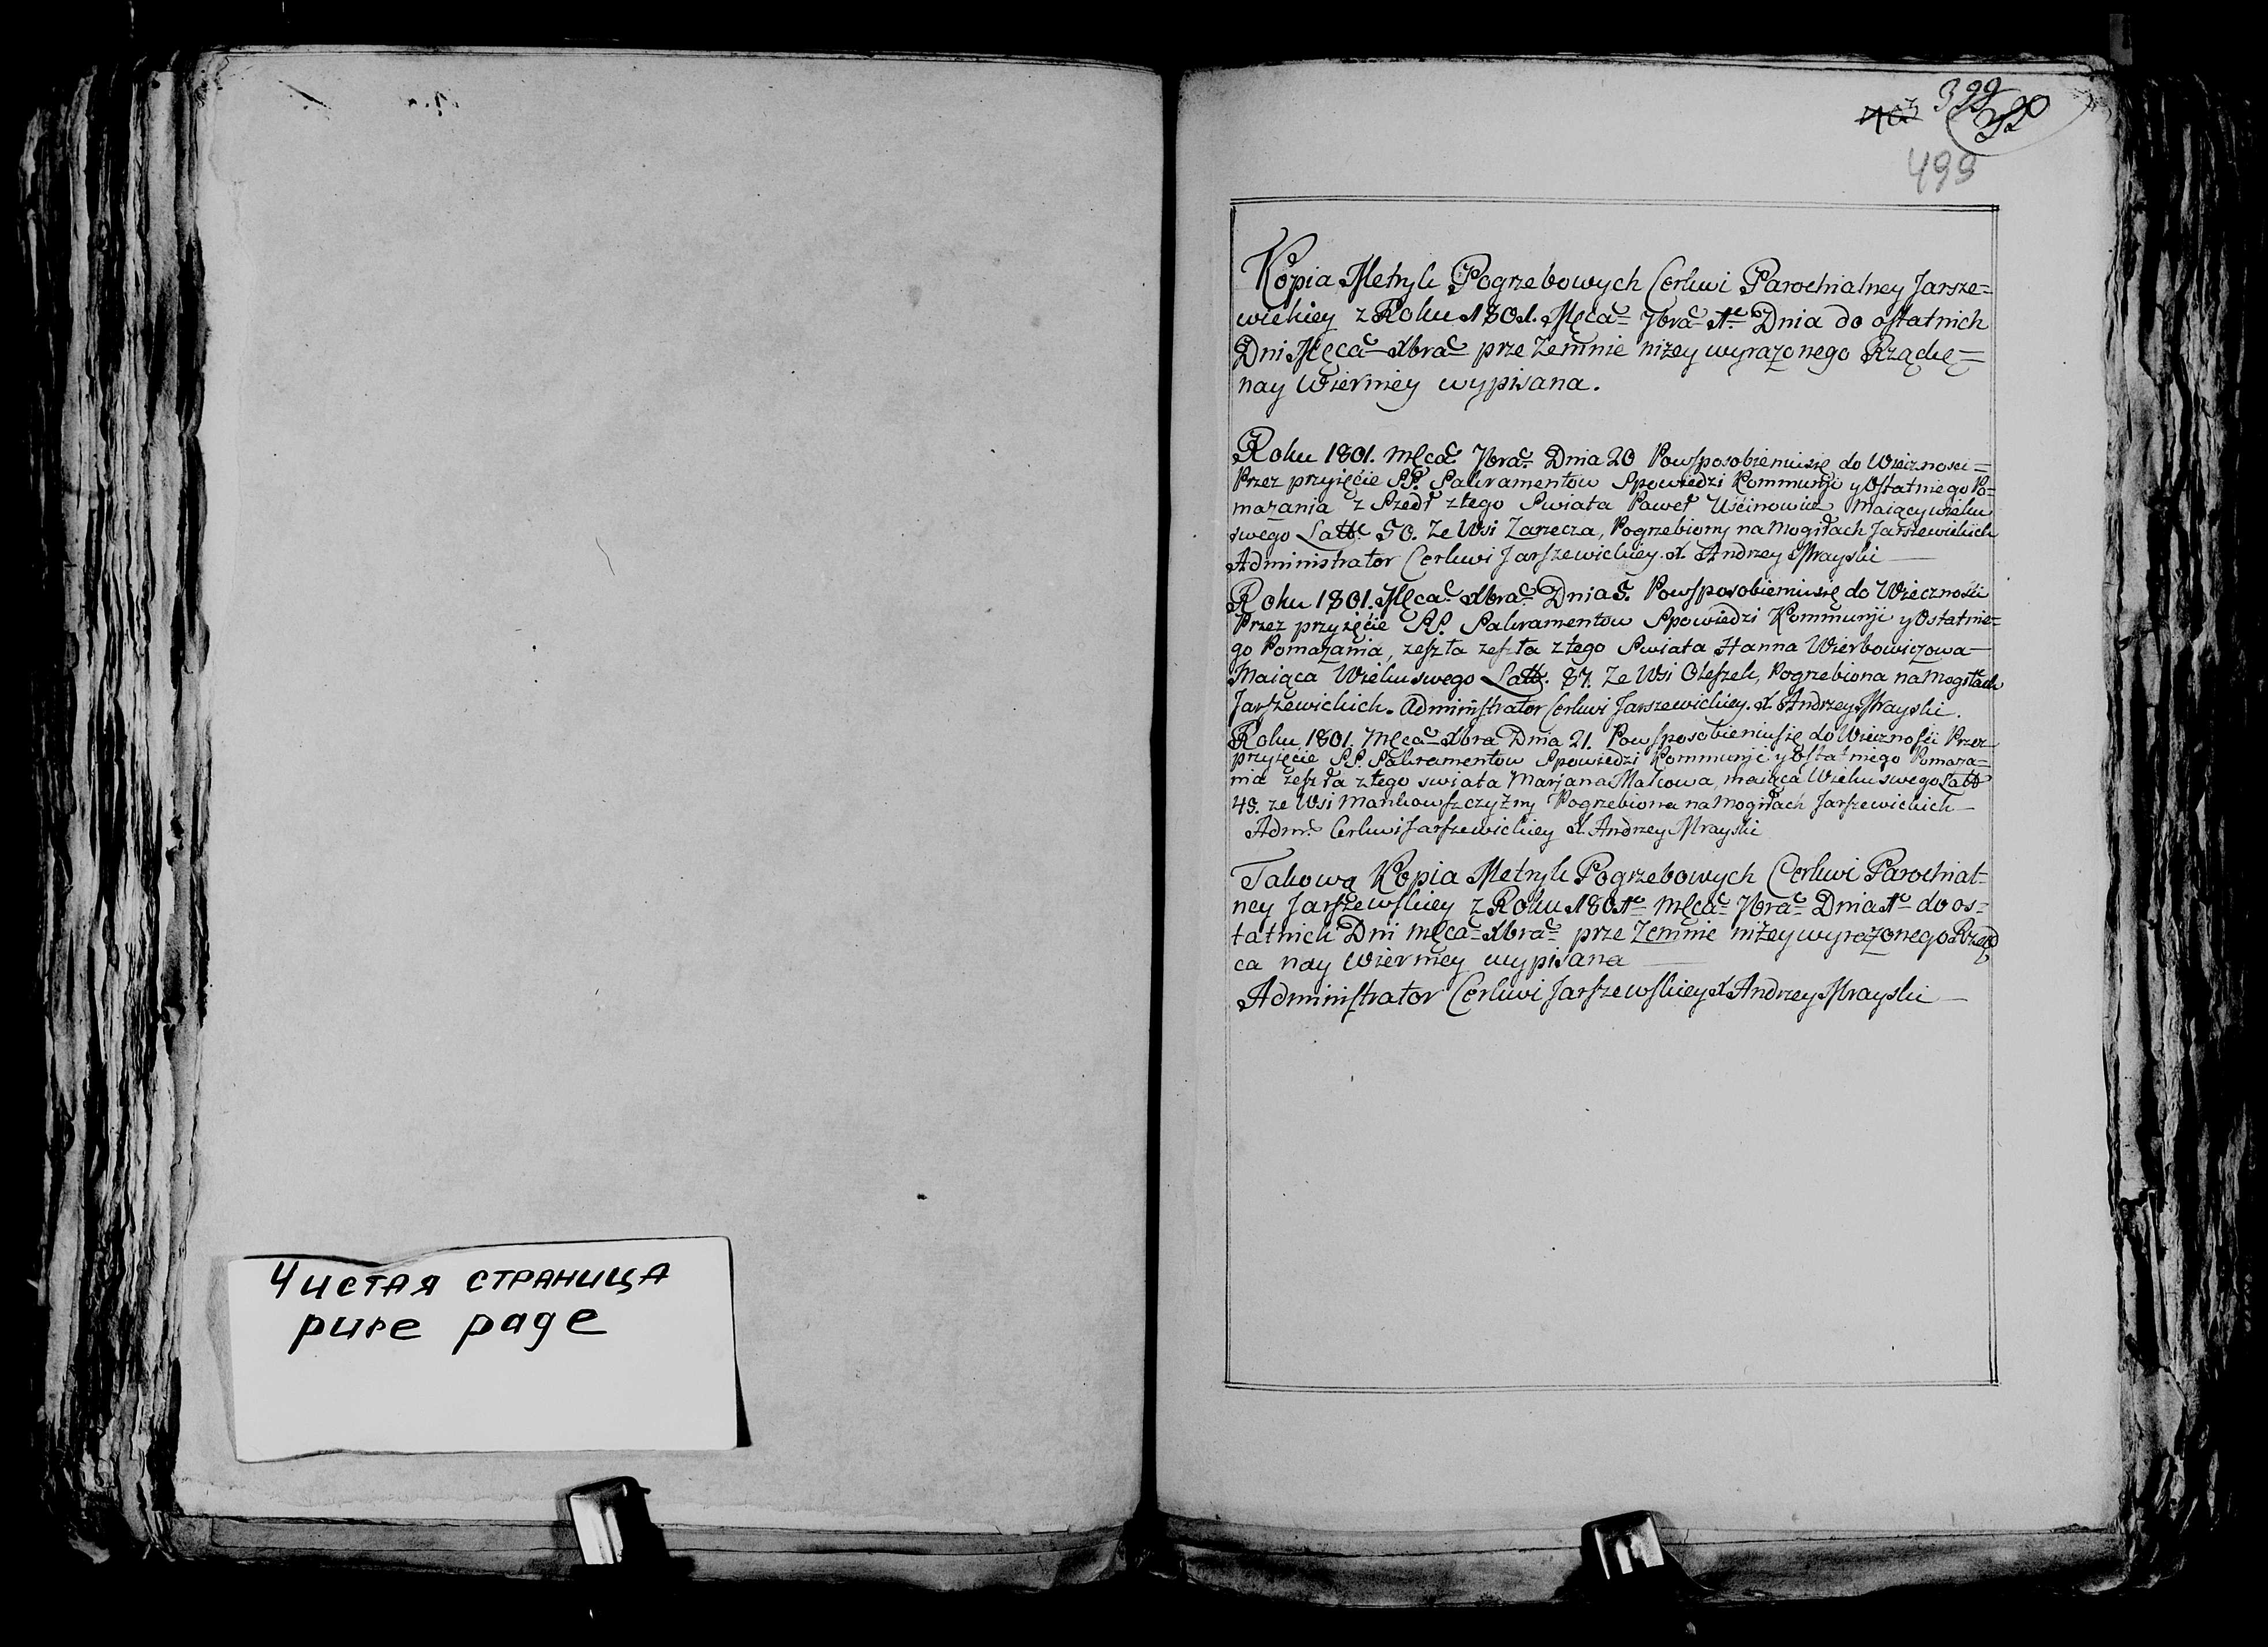 399
499
Kopia Metryk Pogrzebowych Cerkwi Parochialney Jarsze=
wickiey z Roku 1801. Męca 7bra 1º Dnia do ostatnich
Dni Męca Xbra prze Zemnie niżey wyrażonego Rządcę=
nay Wierniey wypisana.
Roku 1801. Męca 7bra Dnia 20 Powsposobieniusię do Wiecznosci=
Przez przyięcie SS. Sakramentow Spowiedzi Kommunji y Ostatniego Po=
mazania z Szedł ztego Swiata Paweł Uścinowicz Maiący wieku
swego Latt. 50. Ze Wsi Zarzecza, Pogrzebiony na Mogiłach Jarszewickich
Administrator Cerkwi Jarszewickiey. X. Andrzey Mrayski
Roku 1801. Męca Xbra Dnia 5. Powsposobieniusię do Wieczności
Przez przyięcie SS. Sakramentow Spowiedzi Kommunji y Ostatnie=
go Pomazania, zeszła zeszła ztego Swiata Hanna Wierbowiczowa
Maiąca Wieku swego Latt. 87. Ze Wsi Oleszek, Pogrzebiona na Mogiłach
Jarszewickich. Administrator Cerkwi Jarszewickiey. X. Andrzey Mrayski.
Roku 1801. Męca Xbra Dnia 21. Powsposobieniusię do Wiecznosci Przez
przyięcie SS. Sakramentow Spowiedzi Kommunji y Ostatniego Pomaza=
nia zeszła ztego swiata Marjana Makowa, maiąca Wieku swego Latt
49. ze Wsi Mankowszczyzny Pogrzebiona na Mogiłach Jarszewickich
Adm. Cerkwi Jarszewickiey X. Andrzey Mrayski
Takowa Kopia Metryk Pogrzebowych Cerkwi Parochial=
ney Jarszewskiey z Roku 1801 Męca 7bra Dnia 1 do os=
tatnich Dni Męca Xbra prze Zemnie niżey wyrażonego Rząd
ca nay Wierniey wypisana
Administrator Cerkwi Jarszewskiey X Andrzey Mrayski
Чистая страница
pure page